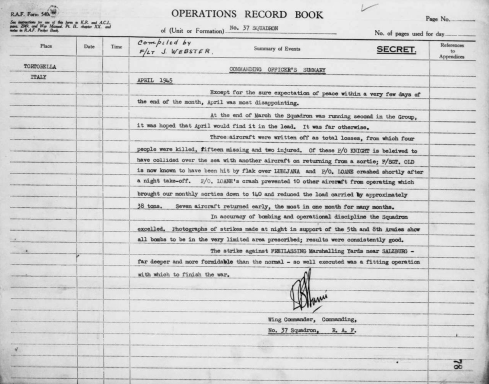 R.A.F. Form 540
OPERATIONS RECORD BOOK
Page No.
See instructions for use of this form in K.R. and A.C.I.,
para. 2349, and War Manual, Pt. II., chapter XX, and
notes in R.A.F. Pocket Book.
of (Unit or Formation) No. 37 SQUADRON
No. of pages used for day
Place
Date
Time
Compiled by
F/LT J. WEBSTER.
Summary of Events
SECRET.
References
to
Appendices
TORTORELLA
ITALY
COMMANDING OFFICER'S SUMMARY
APRIL 1945
Except for the sure expectation of peace within a very few days of
the end of the month, April was most disappointing.
At the end of March the Squadron was running second in the Group,
it was hoped that April would find it in the lead. It was far otherwise.
Three aircraft were written off as total losses, from which four
people were killed, fifteen missing and two injured. Of these F/O KNIGHT is beleived to
have collided over the sea with another aircraft on returning from a sortie; F/SGT. OLD
is now known to have been hit by flak over LUBLJANA and P/O. LOANE crashed shortly after
a night take-off. P/O. LOANE's crash prevented 10 other aircraft from operating which
brought our monthly sorties down to 140 and reduced the load carried by approximately
38 tons. Seven aircraft returned early, the most in one month for many months.
In accuracy of bombing and operational discipline the Squadron
excelled. Photographs of strikes made at night in support of the 5th and 8th Armies show
all bombs to be in the very limited area prescribed; results were consistently good.
The strike against FREILASSING Marshalling Yards near SALZBURG -
far deeper and more formidable than the normal - so well executed was a fitting operation
with which to finish the war.
Wing Commander, Commanding,
No. 37 Squadron, R. A. F.
78